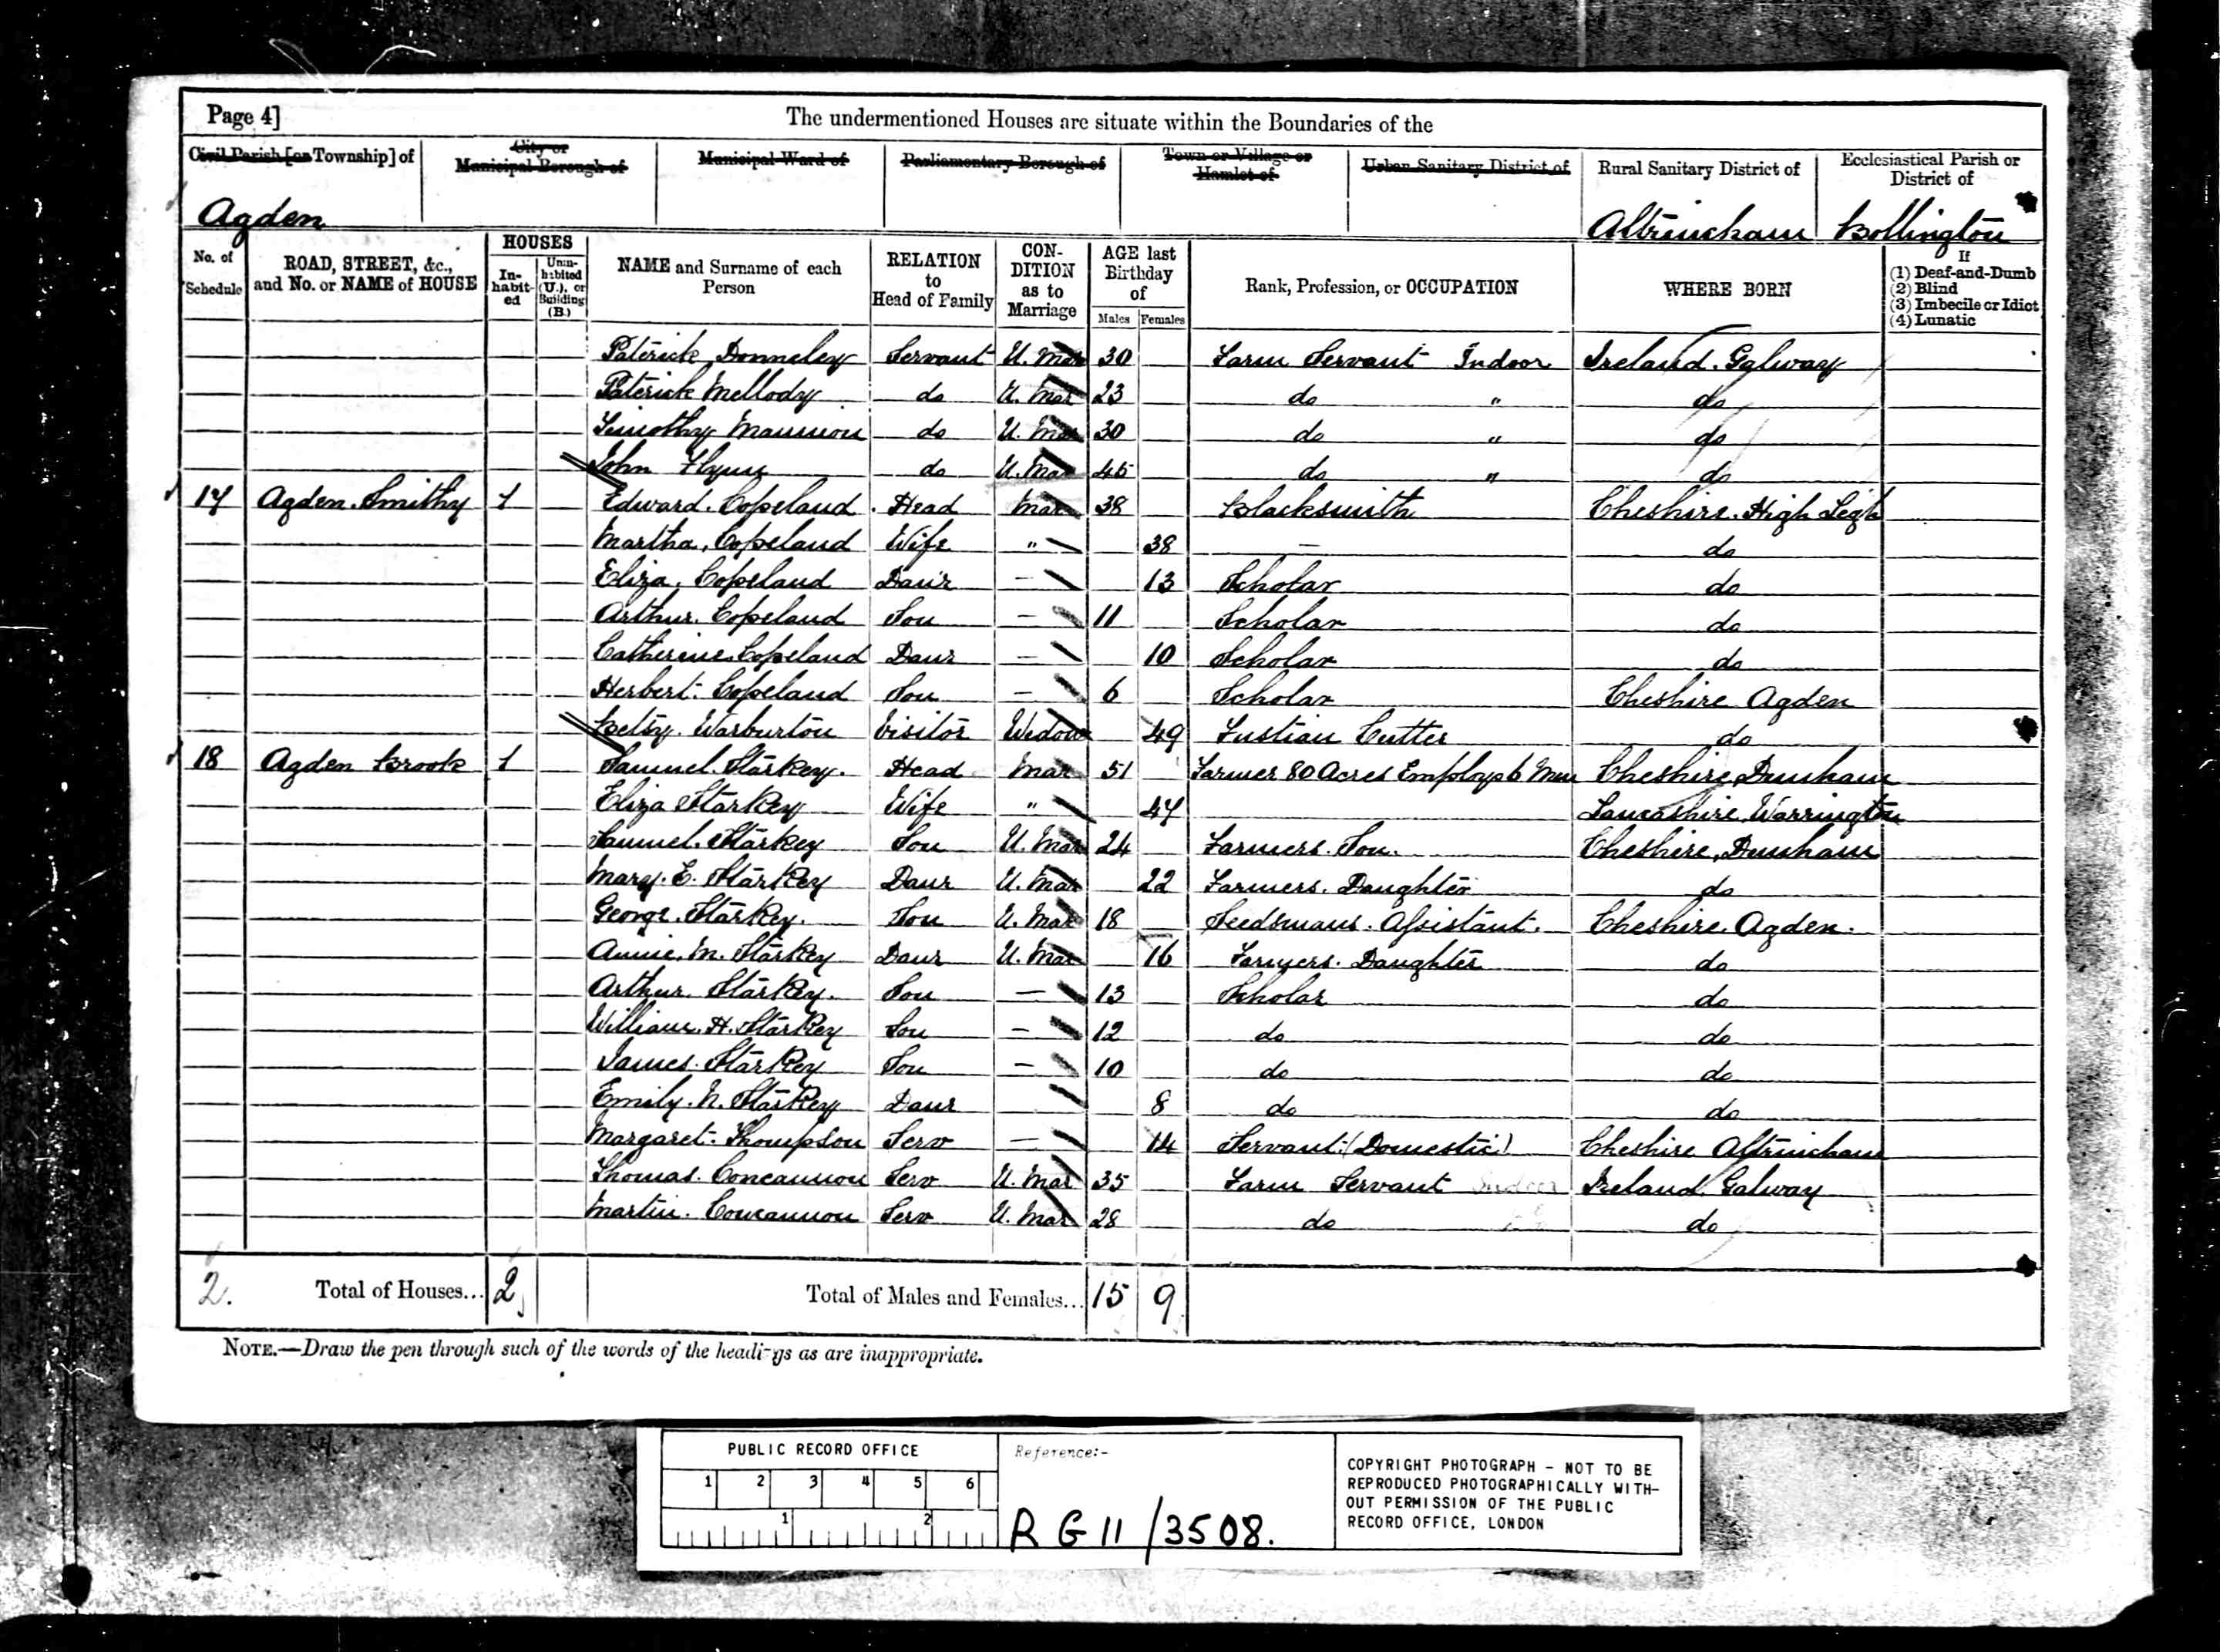 Page 4]
The undermentioned Houses are situate within the Boundaries of the
Civil Parish [or Township] of
City or Municipal Borough of
Municipal Ward of
Parliamentary Borough of
Town or Village or Hamlet of
Urban Sanitary District of
Rural Sanitary District of
Ecclesiastical Parish or District of
Agden Altrincham Bollington
No. of Schedule
ROAD, STREET, &c., and No. or NAME of HOUSE
HOUSES
In-habit-ed
Unin-habited (U.), or Building (B.)
NAME and Surname of each Person
RELATION to Head of Family
CON-DITION as to Marriage
AGE last Birthday of
Males Females
Rank, Profession, or OCCUPATION
WHERE BORN
If
(1) Deaf-and-Dumb
(2) Blind
(3) Imbecile or Idiot
(4) Lunatic
Paterick Donneley Servant U. Mar 30 Farm Servant Indoor Ireland. Galway
Paterick Mellody do U. Mar 23 do " do
Timothy Mannion do U. Mar 30 do " do
John Flynn do U. Mar 45 do " do
17 Agden. Smithy 1 Edward. Copeland. Head Mar 38 Blacksmith Cheshire. High Legh
Martha. Copeland Wife " 38 — do
Eliza. Copeland Daur — 13 Scholar do
Arthur. Copeland Son — 11 Scholar do
Catherine Copeland Daur — 10 Scholar do
Herbert. Copeland Son — 6 Scholar Cheshire Agden
Betsy. Warburton Visitor Widow 49 Fustian Cutter do
18 Agden Brook 1 Samuel. Starkey. Head Mar 51 Farmer 80 Acres Employs 6 Men Cheshire, Dunham
Eliza Starkey Wife " 47 Lancashire. Warrington
Samuel. Starkey Son U. Mar 24 Farmers. Son. Cheshire, Dunham
Mary. E. Starkey Daur U. Mar 22 Farmers. Daughter do
George. Starkey. Son U. Mar 18 Seedsmans. Assistant. Cheshire. Agden.
Annie. M. Starkey Daur U. Mar 16 Farmers. Daughter do
Arthur. Starkey. Son — 13 Scholar do
William. H. Starkey Son — 12 do do
James. Starkey Son — 10 do do
Emily. N. Starkey Daur 8 do do
Margaret. Thompson Serv — 14 Servant (Domestic) Cheshire Altrincham
Thomas. Concannon Serv U. Mar 35 Farm Servant Indoor Ireland. Galway
Martin. Concannon Serv U. Mar 28 do do
2. Total of Houses... 2 Total of Males and Females... 15 9
NOTE.—Draw the pen through such of the words of the headings as are inappropriate.
PUBLIC RECORD OFFICE
1 2 3 4 5 6
1 2
Reference:-
RG 11/3508.
COPYRIGHT PHOTOGRAPH - NOT TO BE
REPRODUCED PHOTOGRAPHICALLY WITH-
OUT PERMISSION OF THE PUBLIC
RECORD OFFICE, LONDON